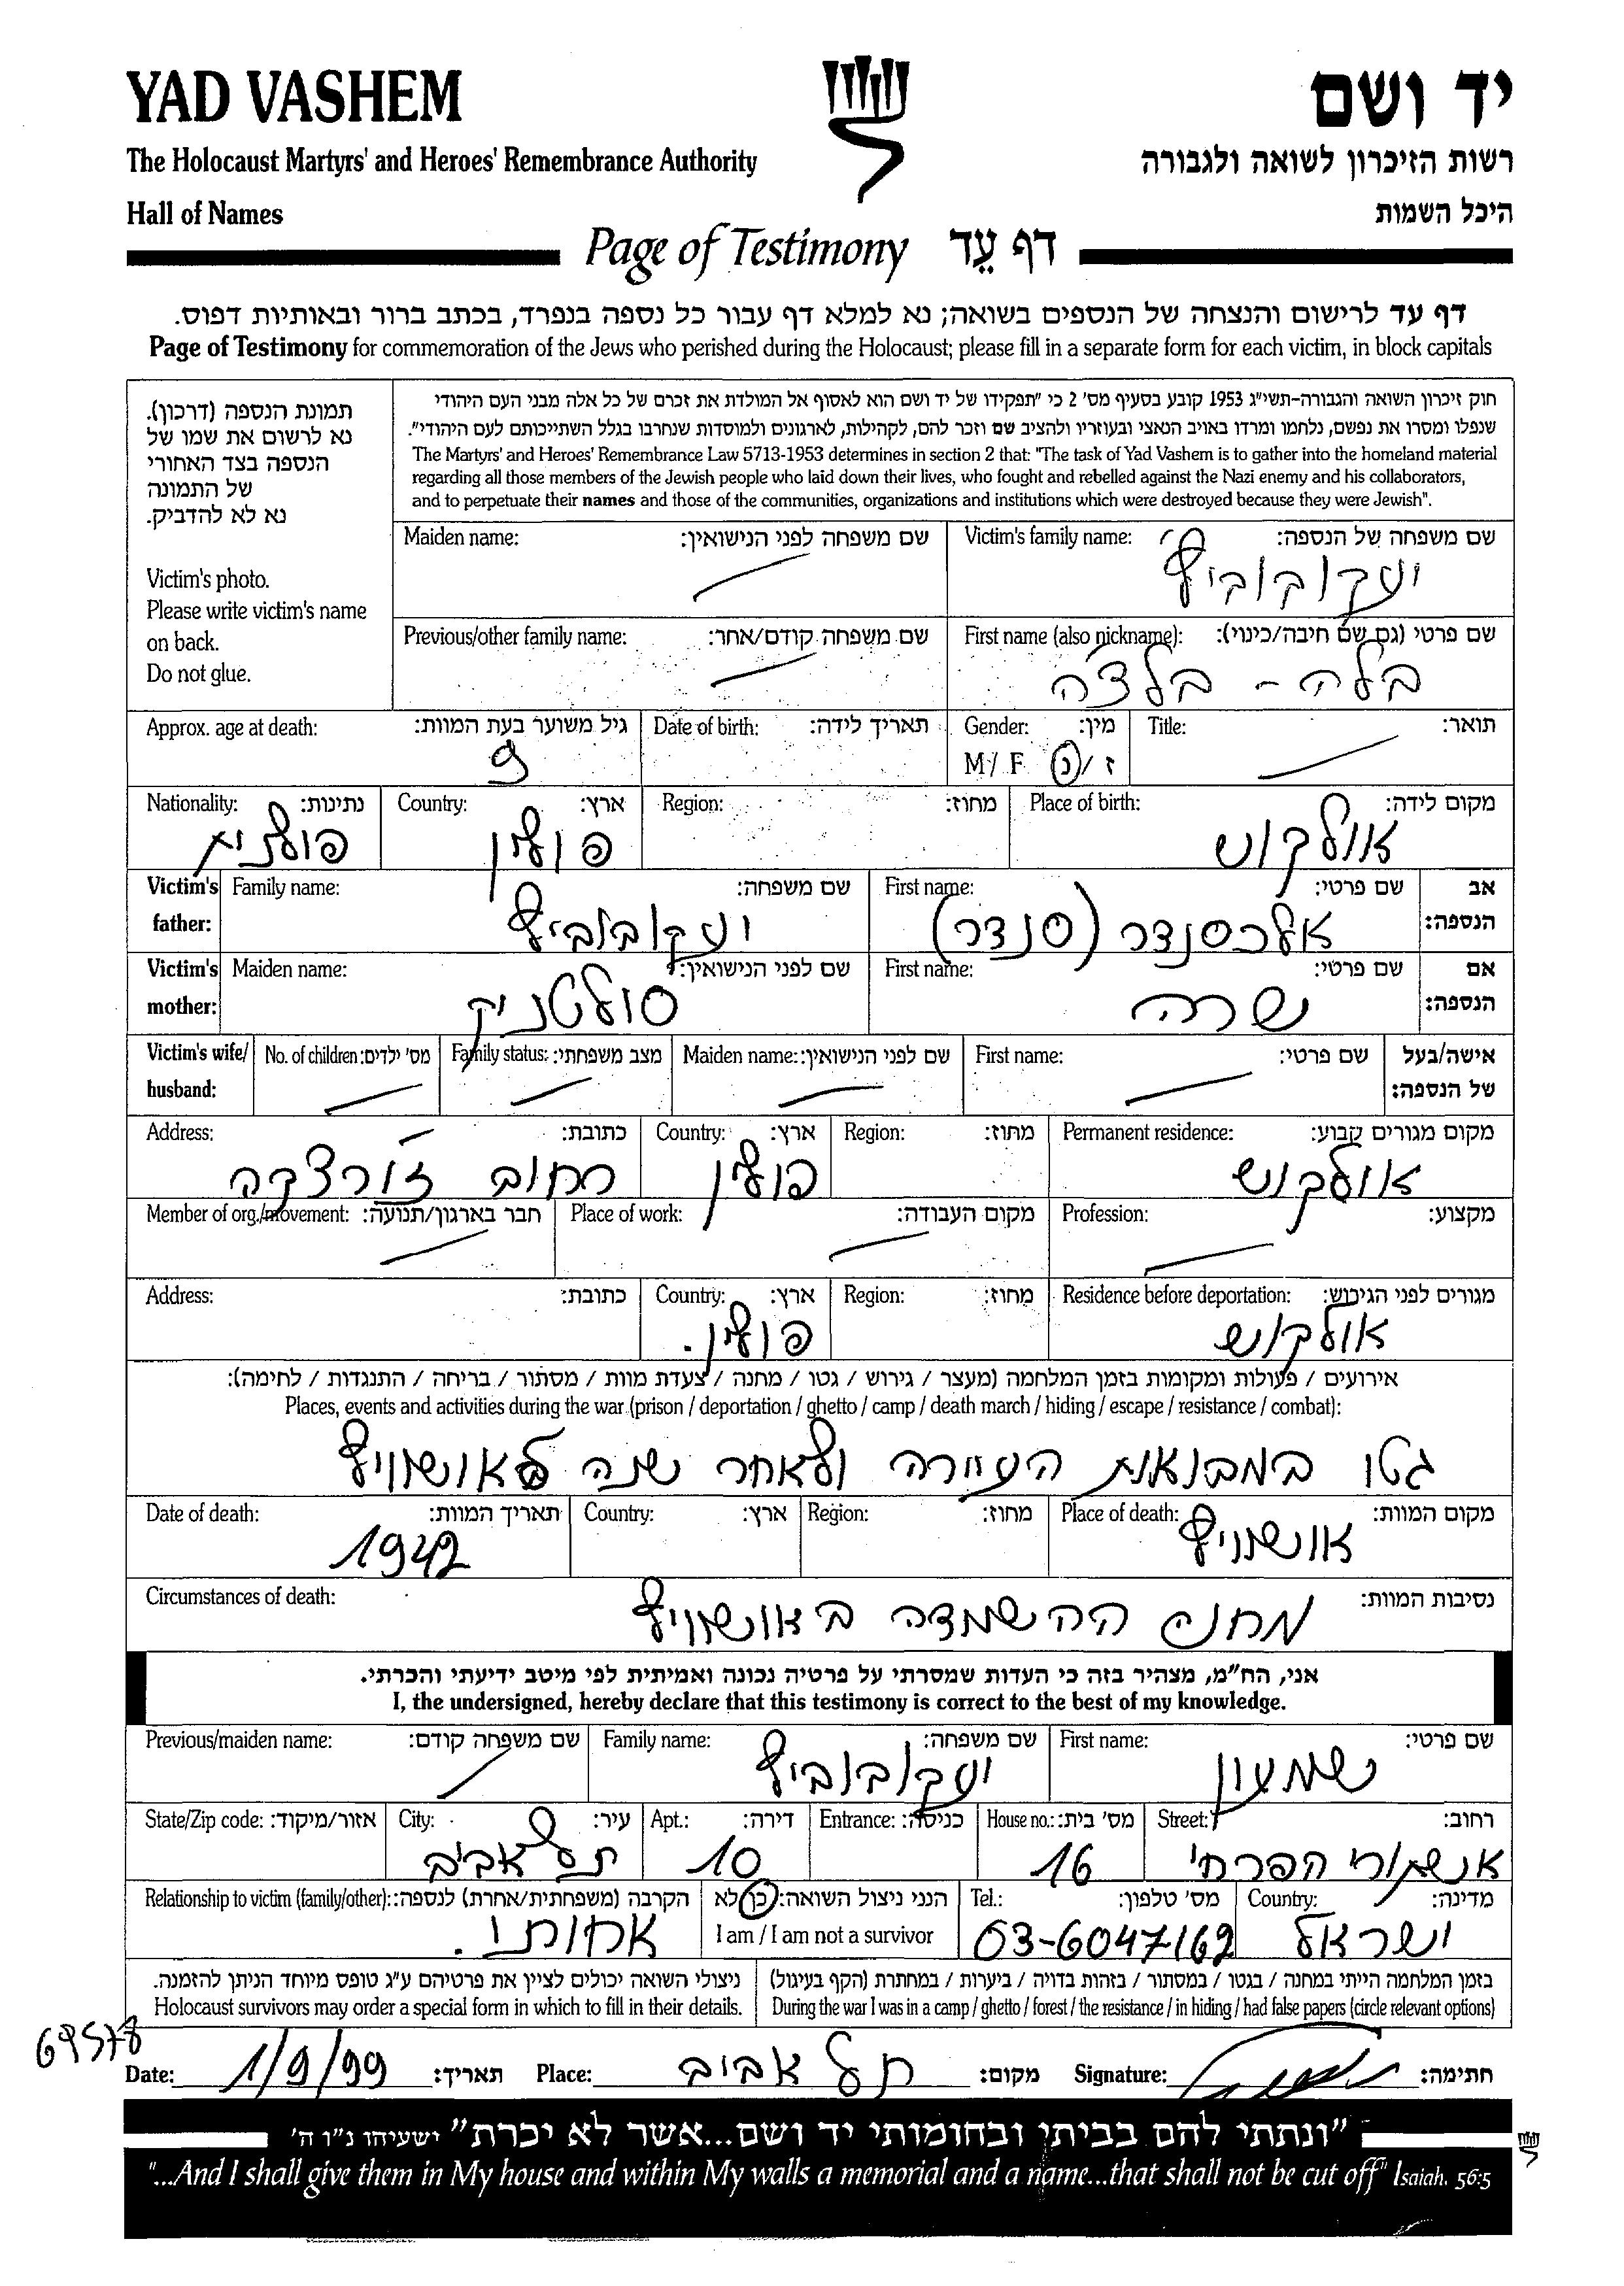 YAD VASHEM
יד ושם
The Holocaust Martyrs' and Heroes' Remembrance Authority
רשות הזיכרון לשואה ולגבורה
Hall of Names
היכל השמות
Page of Testimony דף עֵד
דף עד לרישום והנצחה של הנספים בשואה; נא למלא דף עבור כל נספה בנפרד, בכתב ברור ובאותיות דפוס.
Page of Testimony for commemoration of the Jews who perished during the Holocaust; please fill in a separate form for each victim, in block capitals
תמונת הנספה (דרכון).
נא לרשום את שמו של
הנספה בצד האחורי
של התמונה
נא לא להדביק.
Victim's photo.
Please write victim's name
on back.
Do not glue.
חוק זיכרון השואה והגבורה-תשי"ג 1953 קובע בסעיף מס' 2 כי "תפקידו של יד ושם הוא לאסוף אל המולדת את זכרם של כל אלה מבני העם היהודי
שנפלו ומסרו את נפשם, נלחמו ומרדו באויב הנאצי ובעוזריו ולהציב שם וזכר להם, לקהילות, לארגונים ולמוסדות שנחרבו בגלל השתייכותם לעם היהודי".
The Martyrs' and Heroes' Remembrance Law 5713-1953 determines in section 2 that: "The task of Yad Vashem is to gather into the homeland material
regarding all those members of the Jewish people who laid down their lives, who fought and rebelled against the Nazi enemy and his collaborators,
and to perpetuate their names and those of the communities, organizations and institutions which were destroyed because they were Jewish".
Victim's family name: שם משפחה של הנספה:
יעקובוביץ'
Maiden name: שם משפחה לפני הנישואין:
First name (also nickname): שם פרטי (גם שם חיבה/כינוי):
בלה - בלצ'ה
Previous/other family name: שם משפחה קודם/אחר:
Title: תואר:
Gender: מין:
M/ F ז/נ
Date of birth: תאריך לידה:
Approx. age at death: גיל משוער בעת המוות:
9
Place of birth: מקום לידה:
אולקוש
Region: מחוז:
Country: ארץ:
פולין
Nationality: נתינות:
פולנית
Victim's father: אב הנספה:
First name: שם פרטי:
אלכסנדר (סנדר)
Family name: שם משפחה:
יעקובוביץ
Victim's mother: אם הנספה:
First name: שם פרטי:
שרה
Maiden name: שם לפני הנישואין:
סולטניק
Victim's wife/ husband: אישה/בעל של הנספה:
First name: שם פרטי:
Maiden name: שם לפני הנישואין:
Family status: מצב משפחתי:
No. of children: מס' ילדים:
Permanent residence: מקום מגורים קבוע:
אולקוש
Region: מחוז:
Country: ארץ:
פולין
Address: כתובת:
רחוב ז'ורצקה
Profession: מקצוע:
Place of work: מקום העבודה:
Member of org./movement: חבר בארגון/תנועה:
Residence before deportation: מגורים לפני הגירוש:
אולקוש
Region: מחוז:
Country: ארץ:
פולין.
Address: כתובת:
אירועים / פעולות ומקומות בזמן המלחמה (מעצר / גירוש / גטו / מחנה / צעדת מוות / מסתור / בריחה / התנגדות / לחימה):
Places, events and activities during the war (prison / deportation / ghetto / camp / death march / hiding / escape / resistance / combat):
גטו במבואות העיירה ולאחר שנה לאושוויץ
Place of death: מקום המוות:
אושוויץ
Region: מחוז:
Country: ארץ:
Date of death: תאריך המוות:
1942
Circumstances of death: נסיבות המוות:
מחנה ההשמדה באושוויץ
אני, הח"מ, מצהיר בזה כי העדות שמסרתי על פרטיה נכונה ואמיתית לפי מיטב ידיעתי והכרתי.
I, the undersigned, hereby declare that this testimony is correct to the best of my knowledge.
First name: שם פרטי:
שמעון
Family name: שם משפחה:
יעקובוביץ
Previous/maiden name: שם משפחה קודם:
Street: רחוב:
הפרחי
House no.: מס' בית:
16
Entrance: כניסה:
Apt.: דירה:
10
City: עיר:
תל אביב
State/Zip code: אזור/מיקוד:
Country: מדינה:
ישראל
Tel.: מס' טלפון:
03-6047162
הנני ניצול השואה: כן/לא
I am / I am not a survivor
Relationship to victim (family/other): הקרבה (משפחתית/אחרת) לנספה:
אחותי.
בזמן המלחמה הייתי במחנה / בגטו / במסתור / בזהות בדויה / ביערות / במחתרת (הקף בעיגול)
During the war I was in a camp / ghetto / forest / the resistance / in hiding / had false papers (circle relevant options)
ניצולי השואה יכולים לציין את פרטיהם ע"ג טופס מיוחד הניתן להזמנה.
Holocaust survivors may order a special form in which to fill in their details.
69578
Date: 1/9/99 תאריך: Place: תל אביב מקום: Signature: חתימה:
"ונתתי להם בביתי ובחומותי יד ושם...אשר לא יכרת" ישעיהו נ"ו ה'
"...And I shall give them in My house and within My walls a memorial and a name...that shall not be cut off" Isaiah. 56:5